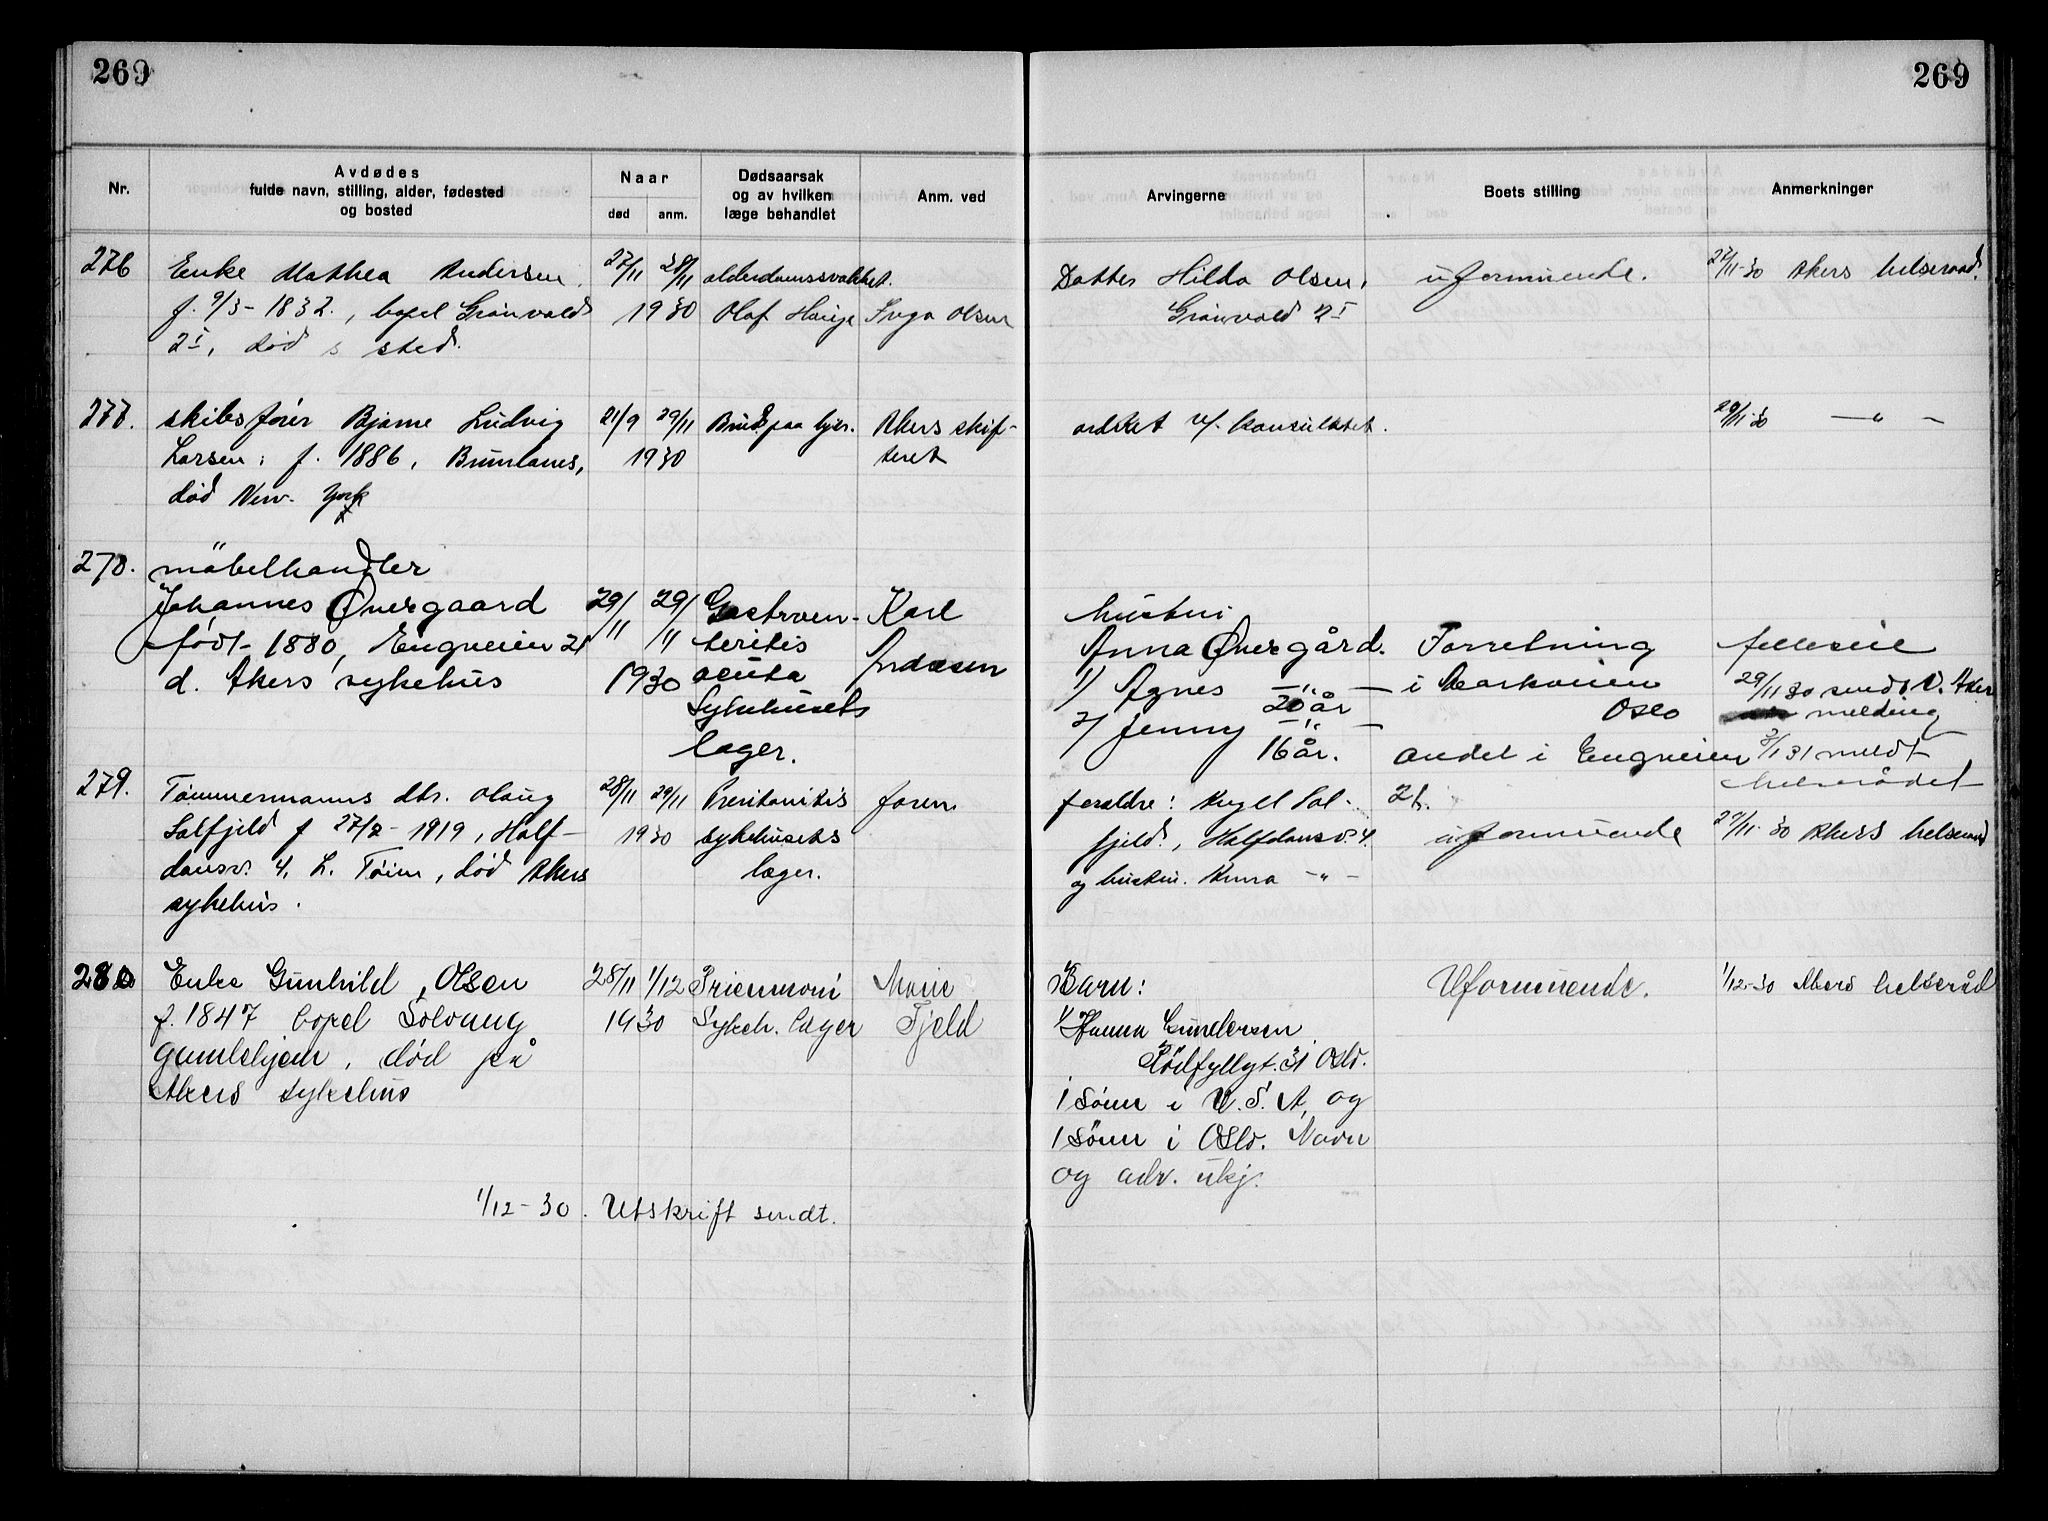 269
269
Nr.
Avdødes
fulde navn, stilling, alder, fødested
og bosted
Naar
død
anm.
Dødsaarsak
og av hvilken
læge behandlet
Anm. ved
Arvingerne
Boets stilling
Anmerkninger
276
Enke Mathea Andersen
f. 9/3 - 1832., bopel Grönvold
2I, død s sted.
27/11 28/11
1930
alderdomssvakhet.
Olaf Hauge
Inga Olsen
Datter Hilda Olsen,
Grönvold 2I
uformuende.
27/11-30 Akers helseraad.
277.
skibsfører Bjarne Ludvig
Larsen, f. 1886,
død New-York
21/9 29/11
1930
Akers skif-
teret
arkket v/ konsulatet.
29/11-30 — " —
278.
möbelhandler
Johannes Øvergaard
født - 1880, Engveien 21
d. Akers sykehus
29/11 29/11
1930
Gastroen-
teritis
acuta
Sykehusets
læger.
Karl
Andersen
hustru
Anna Øvergård.
1/ Agnes — " —
20 år
2/ Jenny — " —
16 år.
Forretning
i Markveien
Oslo
andel i Engveien
21.
felleseie
29/11 30 sendt V. Aker
melding
2/1 31 meldt
helserådet
279.
Tömmermanns dtr. Olaug
Solfjeld f 27/2 - 1919, Half-
dansv. 4, L. Töien, død Akers
sykehus.
28/11 29/11
1930
Peritonitis
sykehusets
læger.
faren
foreldre: Kryll Sol-
fjeld, Halfdansv. 4.
og hustru. Anna — " —
uformuende
29/11-30 Akers helseraad
280
Enke Gunhild Olsen
f. 1847 bopel Solvang
Gamlehjem, död på
Akers sykehus
28/11 1/12
1930
Pneumoni
Sykeh. læger
Marie
Fjeld
Barn:
1/ Hanna Gundersen
Rödfyllgt. 31 Oslo.
1 sönn i U.S.A. og
1 sönn i Oslo. Navn
og adr. ukj.
Uformuende.
1/12-30 Akers helseråd
1/12-30. Utskrift sendt.